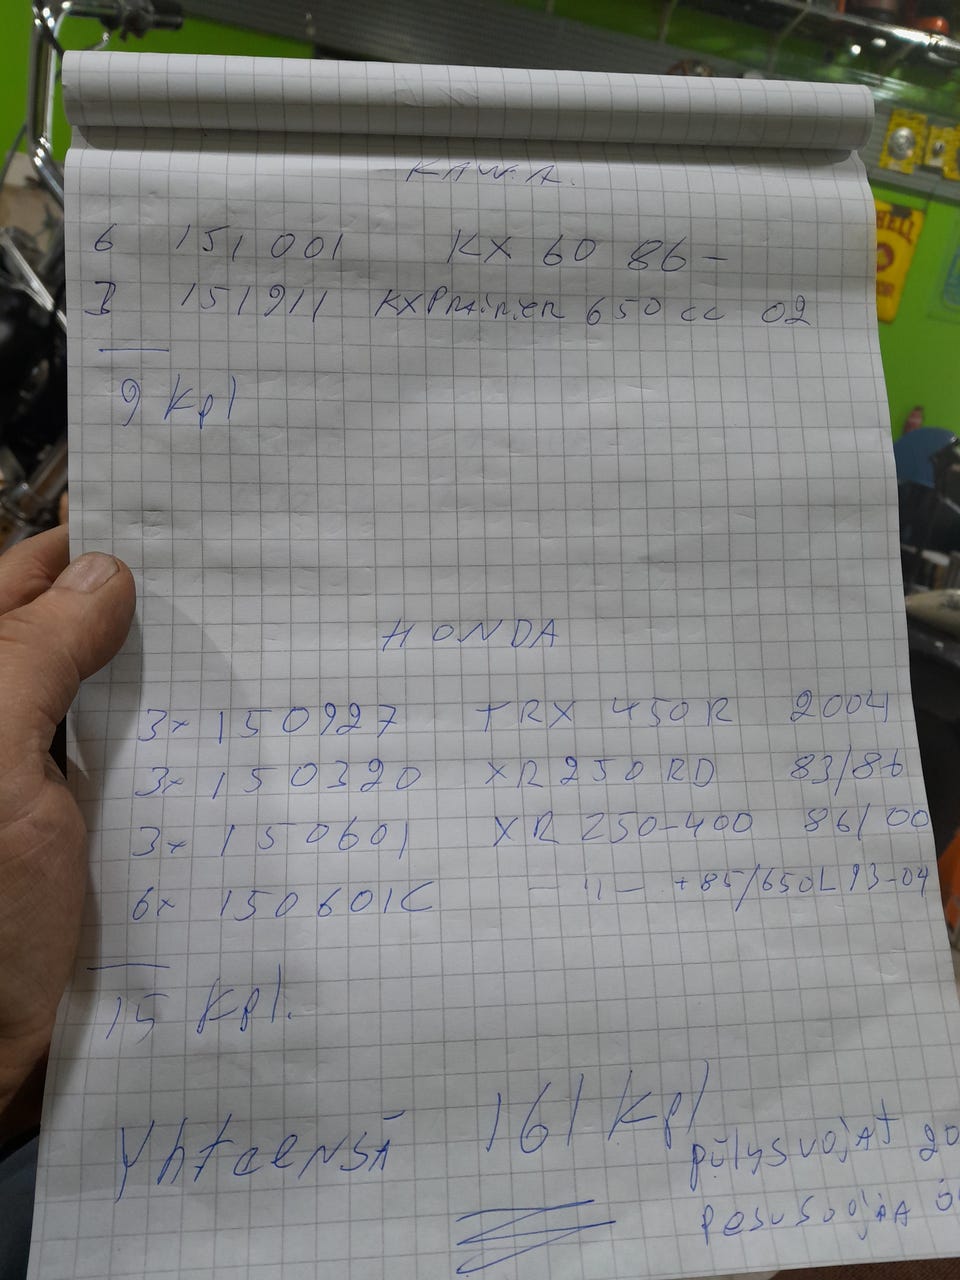 KAWA.
6 151001 KX 60 86-
3 151911 KXPRAiRiER 650 cc 02
9 Kpl
HONDA
3x 150927 TRX 450R 2004
3x 150320 XR250RD 83/86
3x 150601 XR 250-400 86/00
6x 150601C -"- +85/650L 93-04
15 Kpl.
YhteeNSÄ 161 Kpl
pölysuojAt 20
pesusuojiA